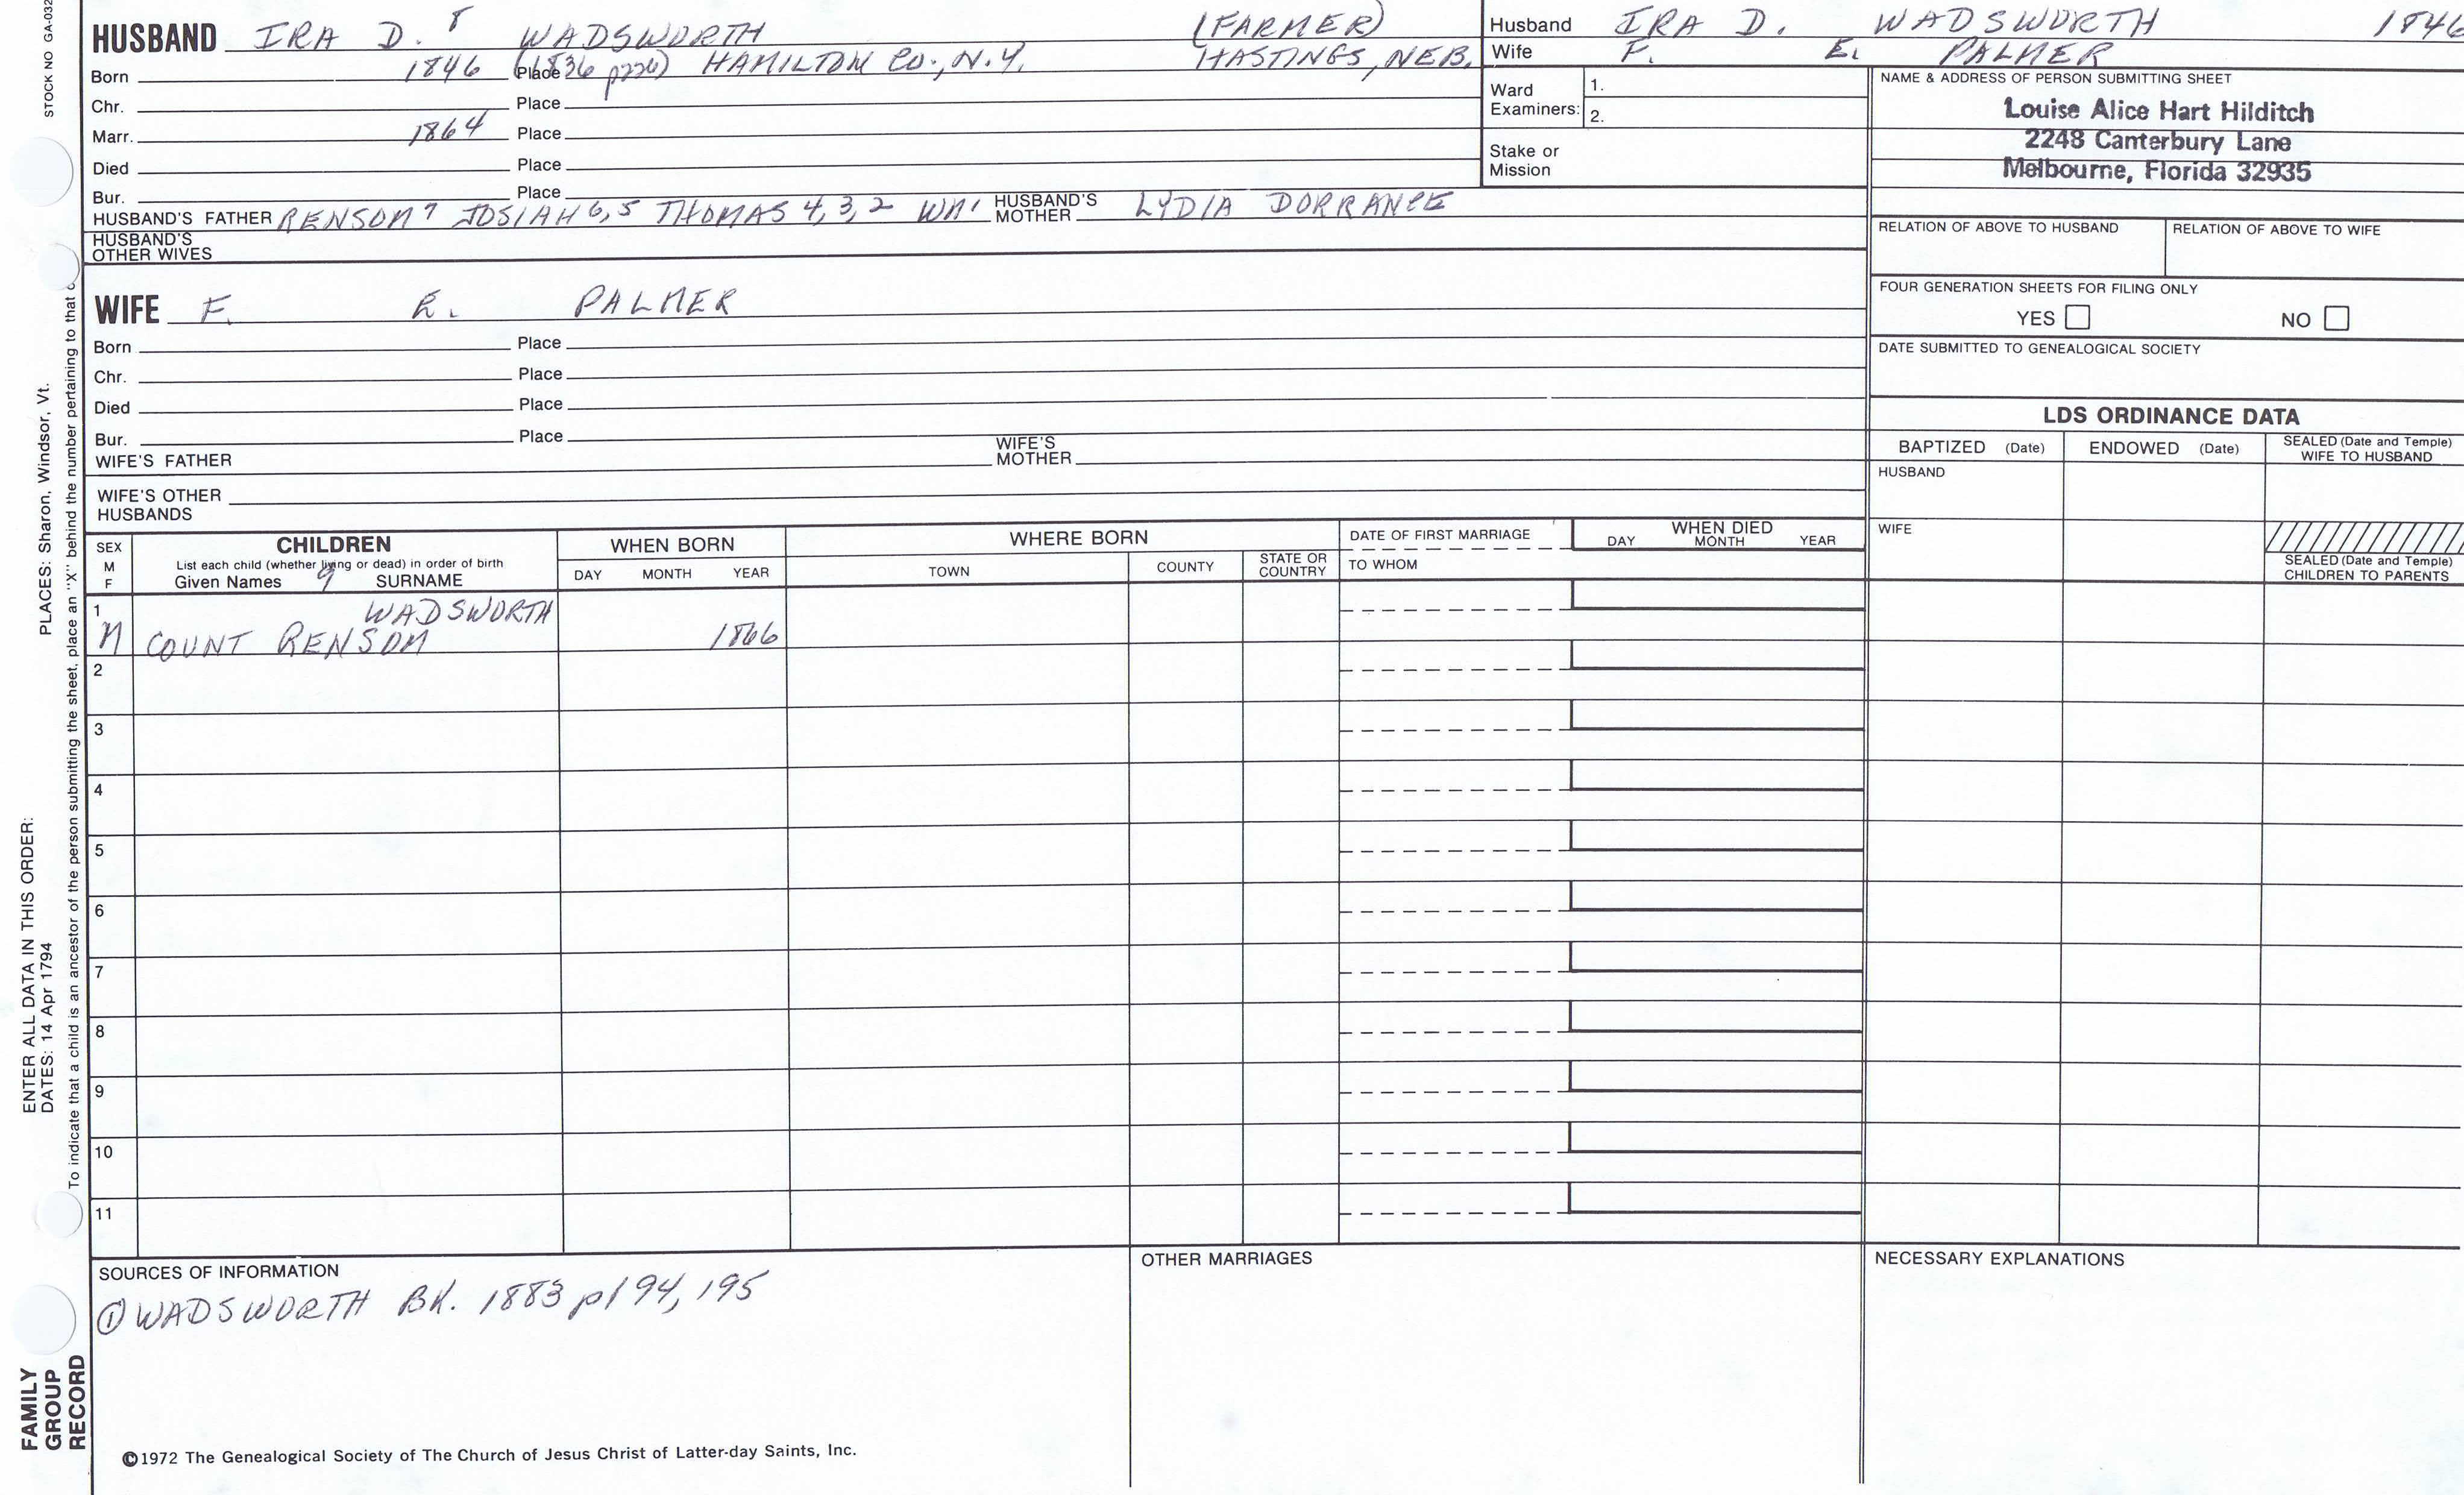 STOCK NO GA-032
PLACES: Sharon, Windsor, Vt.
ENTER ALL DATA IN THIS ORDER:
DATES: 14 Apr 1794
To indicate that a child is an ancestor of the person submitting the sheet, place an "X" behind the number pertaining to that c
FAMILY
GROUP
RECORD
HUSBAND IRA D. 8 WADSWORTH (FARMER)
Born 1846 Place (1836 p226) HAMILTON CO., N.Y. HASTINGS, NEB.
Chr. Place
Marr. 1864 Place
Died Place
Bur. Place
HUSBAND'S FATHER RENSOM 7 JOSIAH 6, 5 THOMAS 4, 3, 2 WM 1 HUSBAND'S MOTHER LYDIA DORRANCE
HUSBAND'S
OTHER WIVES
WIFE F. E. PALMER
Born Place
Chr. Place
Died Place
Bur. Place
WIFE'S FATHER WIFE'S MOTHER
WIFE'S OTHER
HUSBANDS
Husband IRA D. WADSWORTH 1846
Wife F. E. PALMER
Ward
Examiners:
1.
2.
Stake or
Mission
NAME & ADDRESS OF PERSON SUBMITTING SHEET
Louise Alice Hart Hilditch
2248 Canterbury Lane
Melbourne, Florida 32935
RELATION OF ABOVE TO HUSBAND RELATION OF ABOVE TO WIFE
FOUR GENERATION SHEETS FOR FILING ONLY
YES NO
DATE SUBMITTED TO GENEALOGICAL SOCIETY
LDS ORDINANCE DATA
BAPTIZED (Date) ENDOWED (Date) SEALED (Date and Temple)
WIFE TO HUSBAND
HUSBAND
WIFE
SEALED (Date and Temple)
CHILDREN TO PARENTS
SEX
M
F
CHILDREN
List each child (whether living or dead) in order of birth
Given Names 9 SURNAME
WHEN BORN
DAY MONTH YEAR
WHERE BORN
TOWN COUNTY STATE OR COUNTRY
DATE OF FIRST MARRIAGE
TO WHOM
WHEN DIED
DAY MONTH YEAR
1 WADSWORTH
M COUNT RENSOM 1866
2
3
4
5
6
7
8
9
10
11
SOURCES OF INFORMATION
① WADSWORTH BK. 1883 p194, 195
OTHER MARRIAGES
NECESSARY EXPLANATIONS
©1972 The Genealogical Society of The Church of Jesus Christ of Latter-day Saints, Inc.